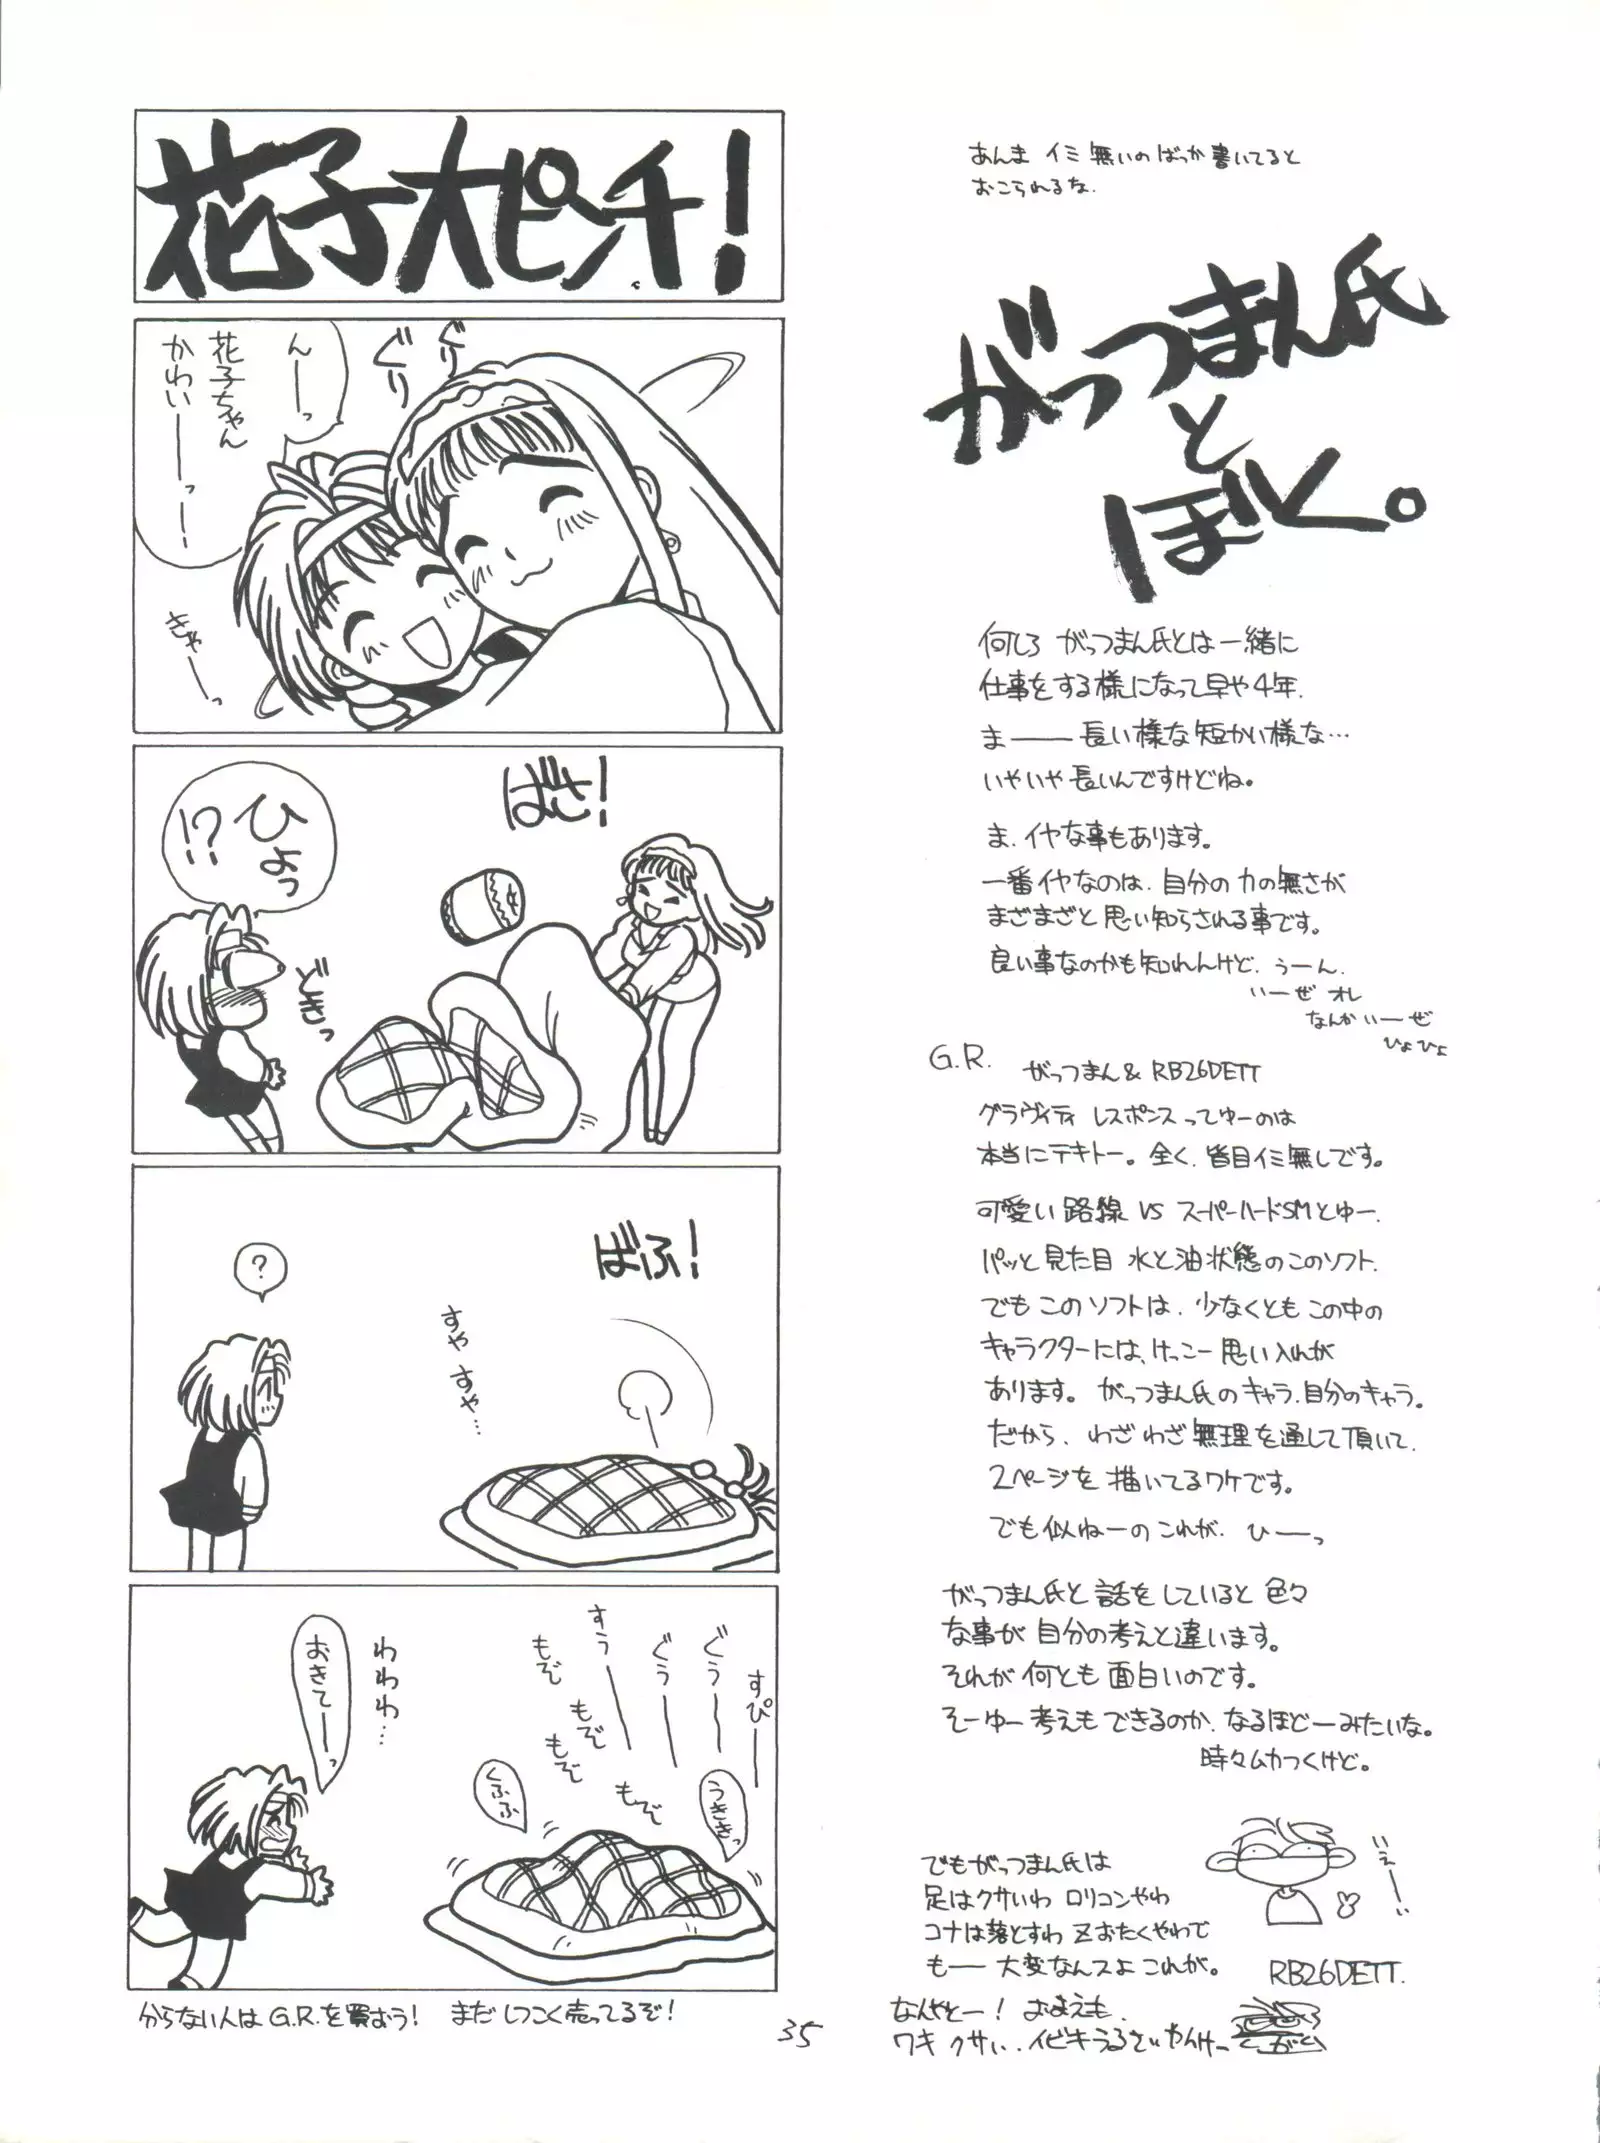 花子大ピンチ!
んーっ
花子ちゃん
かわいーっー
ぐりぐり
きゃーっ
ばさ!
ひょっ
!?
どきっ
ばふ!
?
すや すや…
わわわ…
おきてーっ
すぴー
ぐぅー
ぐぅー
すぅー
もぞ
もぞ
もぞ
もぞ
くふふ
うききっ
分らない人は G.R.を買おう! まだしつこく売ってるぞ!
35
あんま イミ 無いのばっか書いてると
おこられるな.
がっつまん氏
と
ぼく。
何しろ がっつまん氏とは一緒に
仕事をする様になって早や4年.
まーー長い様な短かい様な…
いやいや長いんですけどね。
ま、イヤな事もあります。
一番イヤなのは、自分の力の無さが
まざまざと思い知らされる事です。
良い事なのかも知れんけど、うーん.
いーぜ オレ
なんか いーぜ
ひょひょ
G.R. がっつまん & RB26DETT
グラヴィティ レスポンスってゆーのは
本当にテキトー。全く、皆目イミ無しです。
可愛い路線 VS スーパーハードSMとゆー、
パッと見た目 水と油状態のこのソフト.
でもこのソフトは、少なくともこの中の
キャラクターには、けっこー思い入れが
あります。がっつまん氏のキャラ、自分のキャラ。
だから、わざわざ無理を通して頂いて、
2ページを描いてるワケです。
でも似ねーのこれが、ひーっ
がっつまん氏と話をしていると色々
な事が自分の考えと違います。
それが何とも面白いのです。
そーゆー考えもできるのか、なるほどーみたいな。
時々ムカつくけど。
でもがっつまん氏は
足はクサいわ ロリコンやわ
コナは落とすわ Zおたくやわで
もー 大変なんスよ これが。
いぇーい
RB26DETT.
なんやとー! おまえも、
ワキ クサい、イビキうるさいやんけー